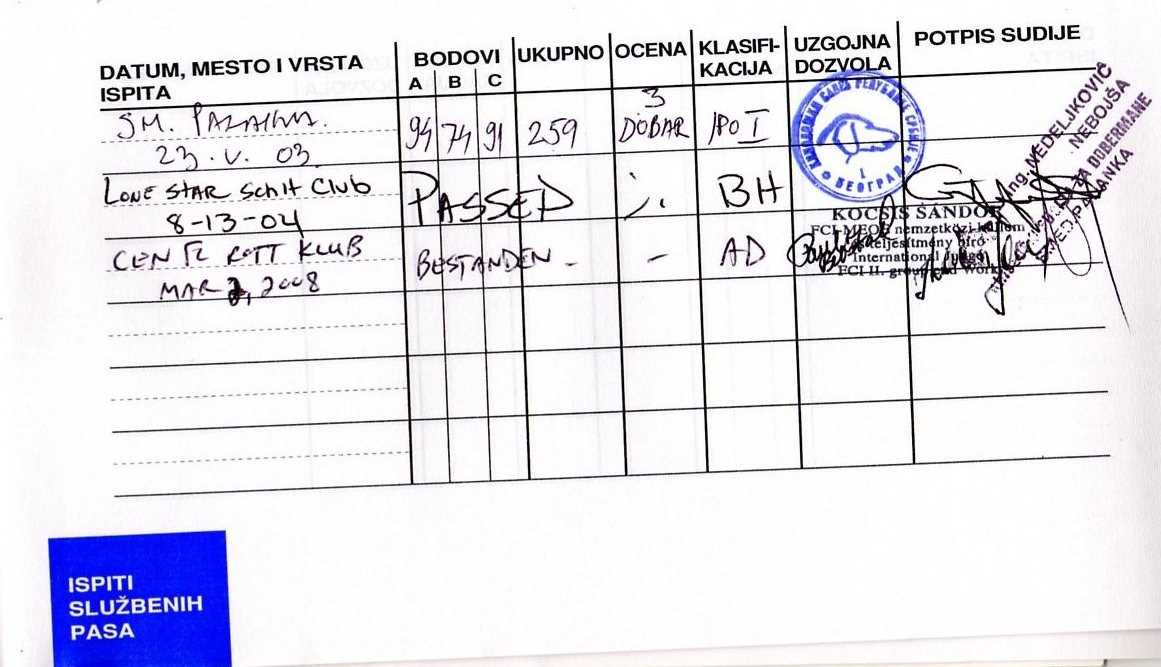 DATUM, MESTO I VRSTA
ISPITA
BODOVI
A B C
UKUPNO
OCENA
KLASIFI-
KACIJA
UZGOJNA
DOZVOLA
POTPIS SUDIJE
SM. PALANKA.
23. V. 03.
94 74 91 259 3 DOBAR IPO I
LONE STAR SCHH CLUB
8-13-04
PASSED BH
KOCSIS SÁNDOR
FCI-MEOE nemzetközi
teljesítmény bíró
International Judge
FCI II. group and Work
CENTL ROTT KLUB
MAR 2, 2008
BESTANDEN - - AD
БЕОГРАД
Ing. NEDELJKOVIĆ
NEBOJŠA
ZA DOBERMANE
SMED. PALANKA
ISPITI
SLUŽBENIH
PASA